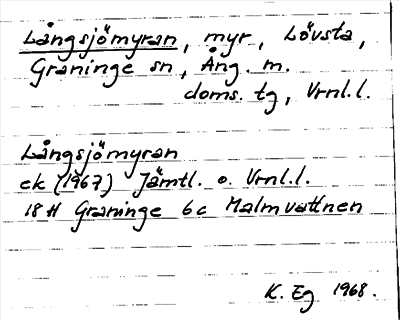 Långsjömyran, myr, Lövsta,
Graninge sn, Ång. m.
doms. tg, Vrnl.l.
Långsjömyran
ek (1967) Jämtl. o. Vrnl.l.
18 H Graninge 6c Malmvattnen
K. Eg 1968.